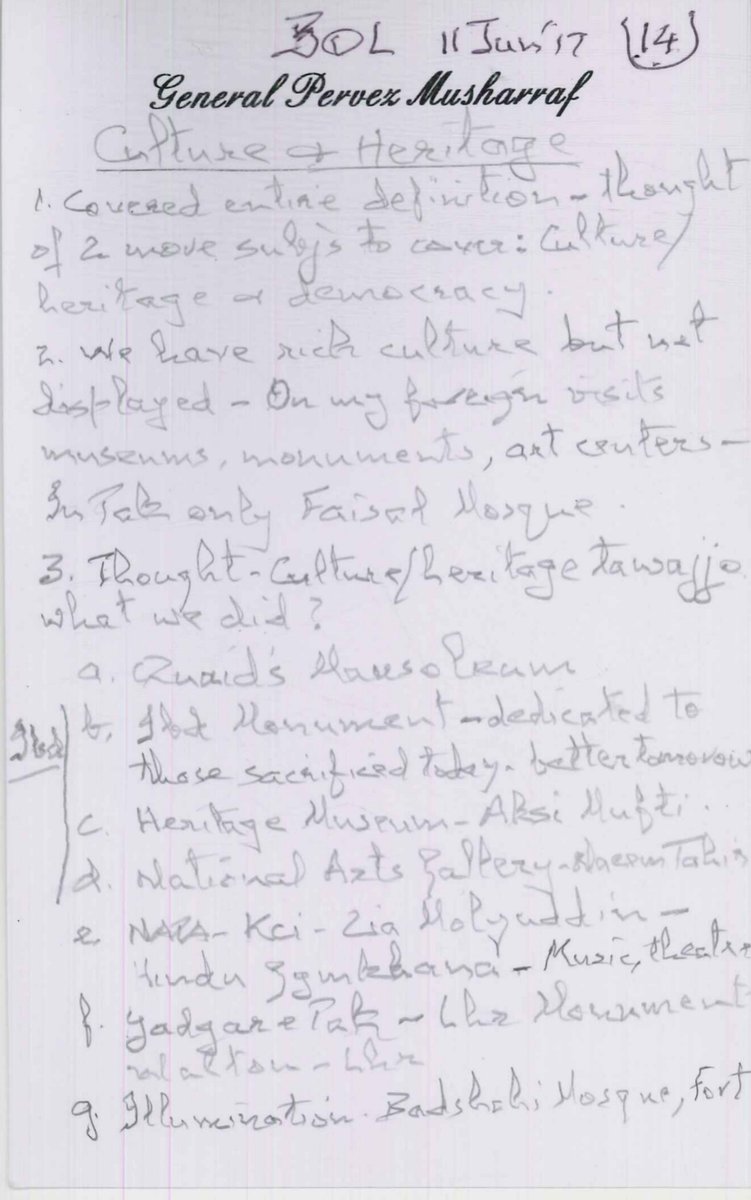 BOL 11 Jun'17 (14)
General Pervez Musharraf
Culture & Heritage
1. Covered entire definition - thought
of 2 more subjs to cover: Culture/
heritage & democracy.
2. We have rich culture but not
displayed - On my foreign visits
museums, monuments, art centers -
In Pak only Faisal Mosque.
3. Thought - Culture/heritage tawajjo.
what we did?
a. Quaid's Mausoleum
Ibd
b. Ibd Monument - dedicated to
those sacrificed today - better tomorow
c. Heritage Museum - Aksi Mufti.
d. National Arts Gallery - Naeem Tahir
e. NAPA - Kci - Zia Mohyuddin -
Hindu Gymkhana - Music, theatre
f. Yadgare Pak - Lhr Monument
Walton - Lhr
g. Illumination. Badshahi Mosque, Fort